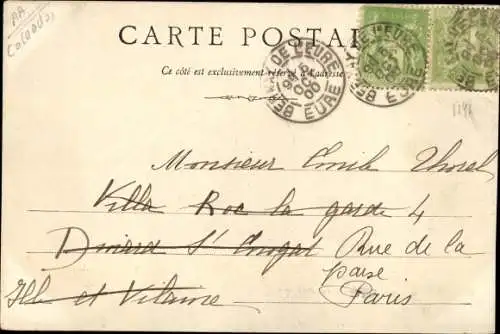 AA
CARTE POSTAL
Ce côté est exclusivement réservé à l'adresse
DE L'EURE
EURE
DE L'EURE
EURE
Monsieur Emile Thorel
Villa Roc la garde 4
Dinard St Enogat Rue de la
paix
Ille et Vilaine Paris